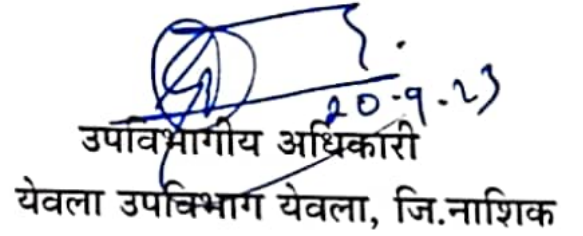 20-9-23
उपविभागीय अधिकारी
येवला उपविभाग येवला, जि.नाशिक